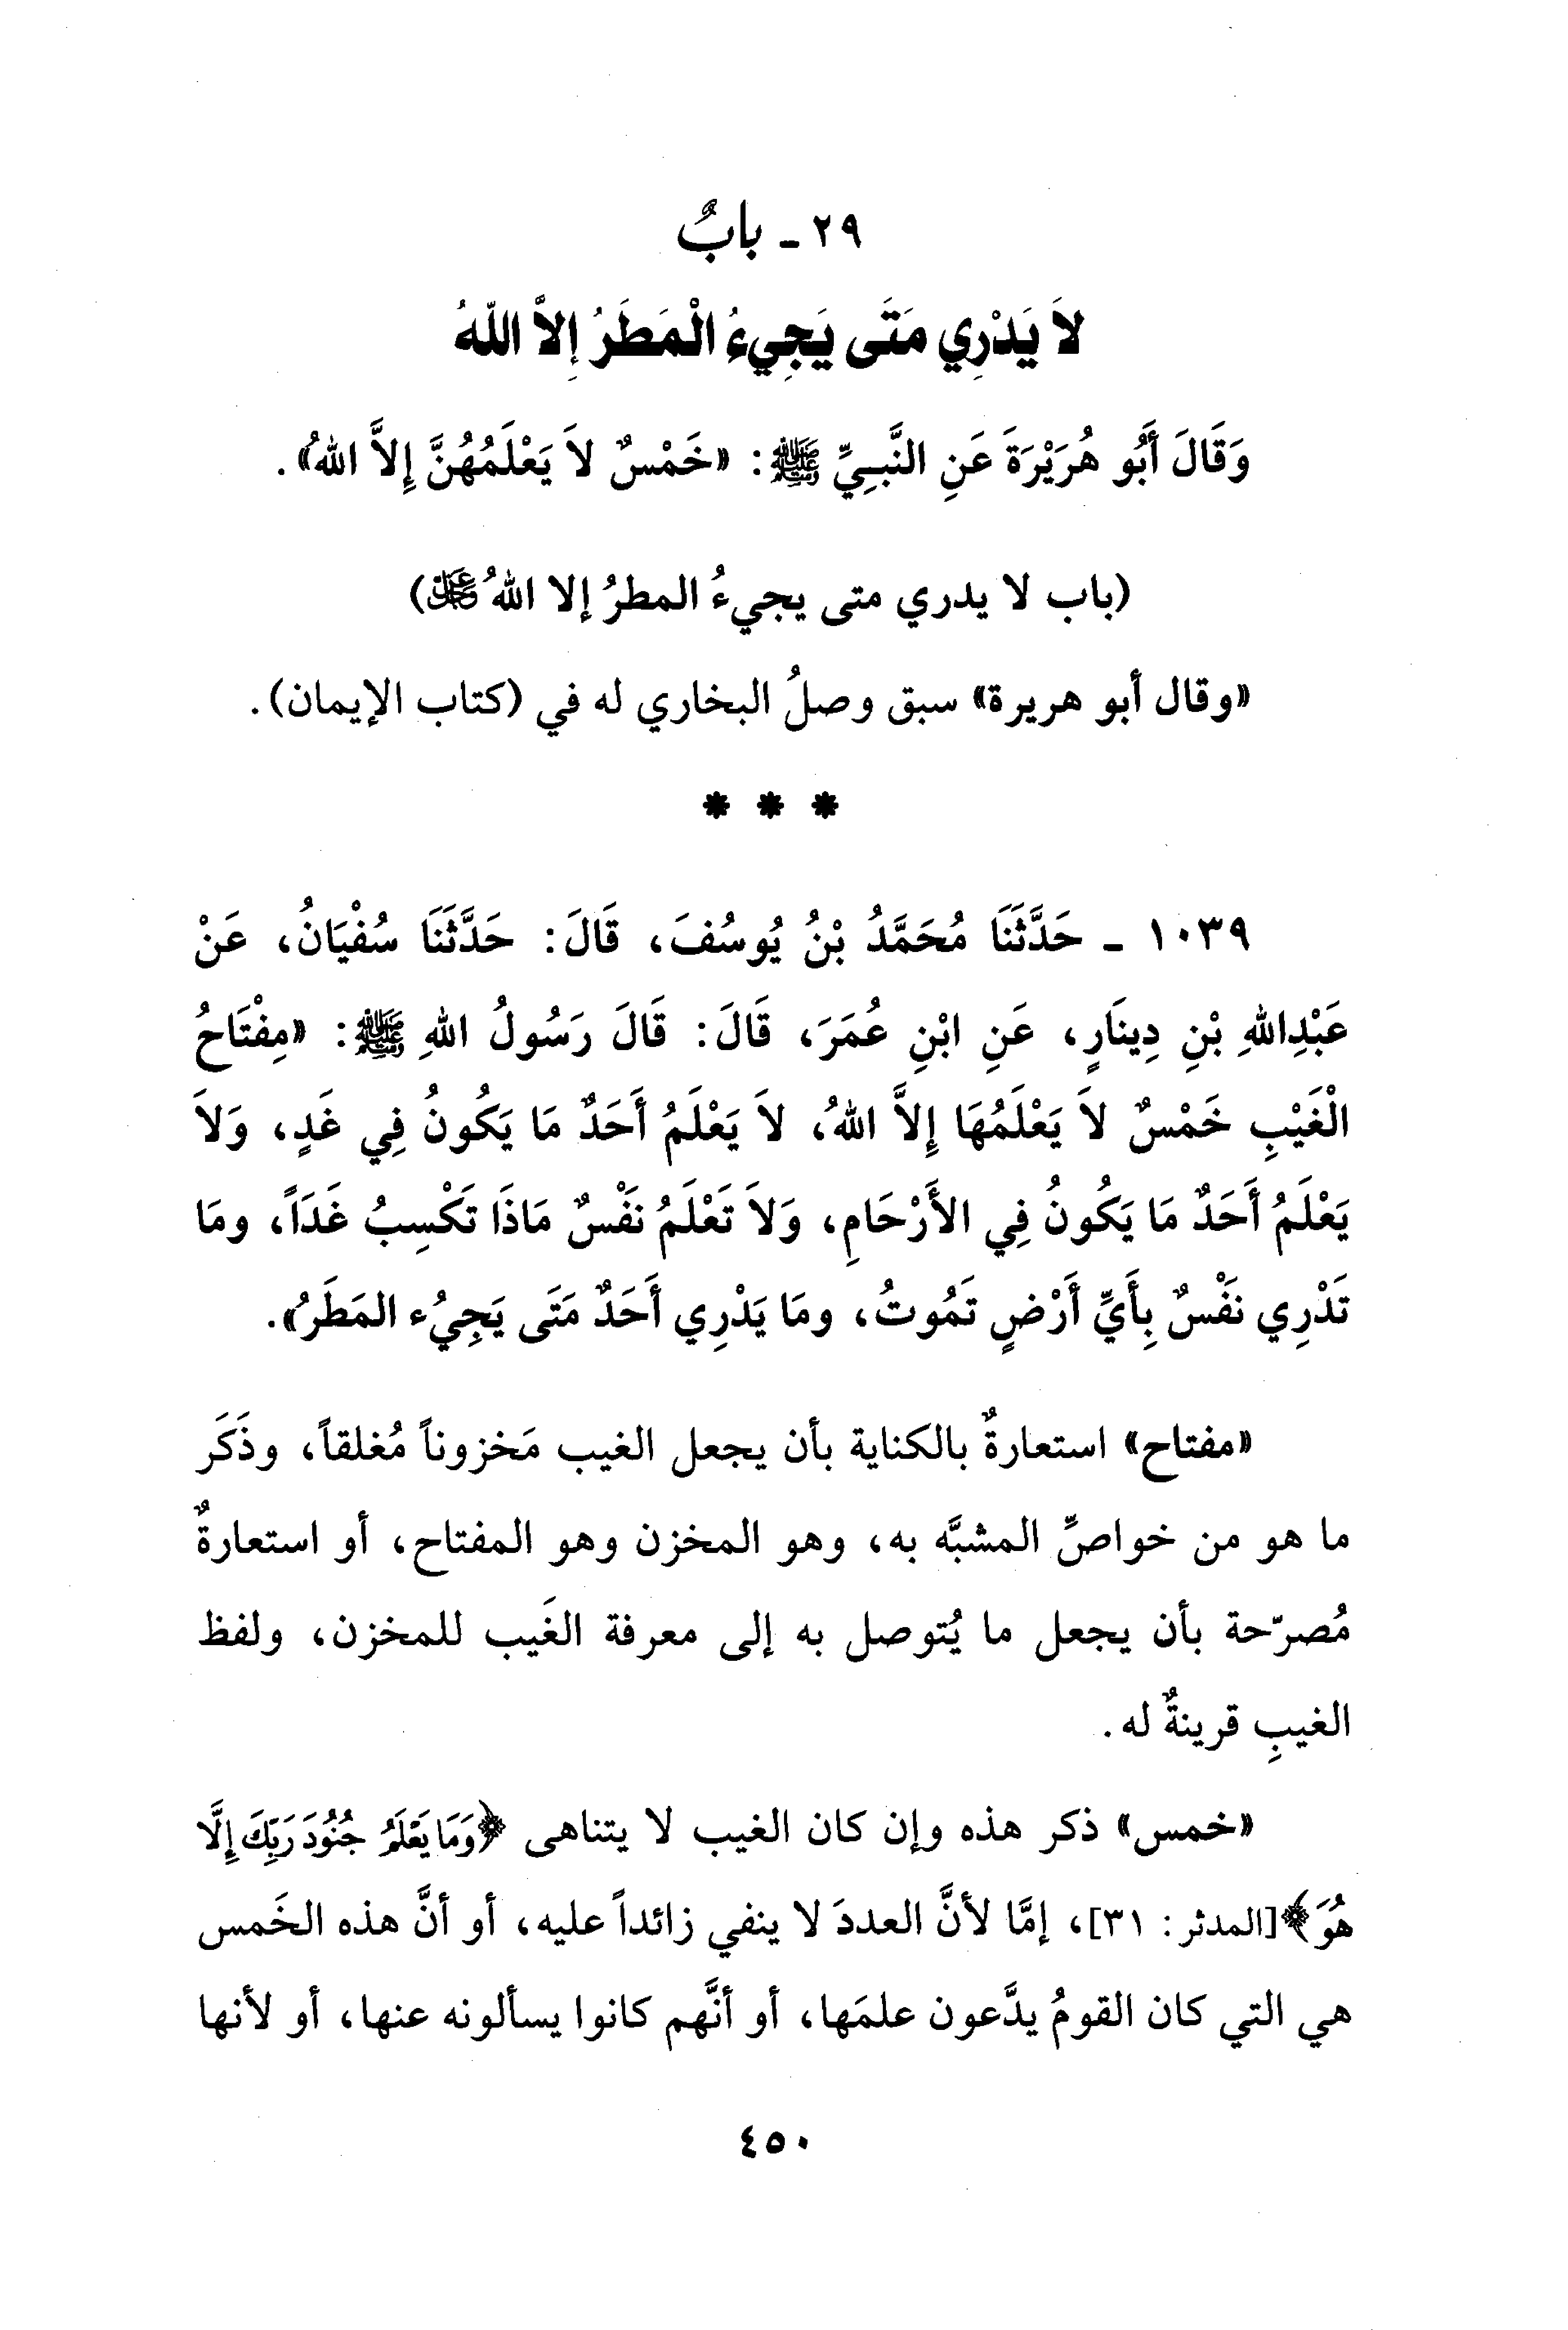 ٢٩ - بابٌ
لاَ يَدْرِي مَتَى يَجِيءُ الْمَطَرُ إِلاَّ اللّهُ
وَقَالَ أَبُو هُرَيْرَةَ عَنِ النَّبِيِّ ﷺ: «خَمْسٌ لاَ يَعْلَمُهُنَّ إِلاَّ اللهُ».
(باب لا يدري متى يجيءُ المطرُ إلا اللهُ ﷻ)
«وقال أبو هريرة» سبق وصلُ البخاري له في (كتاب الإيمان).
* * *
١٠٣٩ - حَدَّثَنَا مُحَمَّدُ بْنُ يُوسُفَ، قَالَ: حَدَّثَنَا سُفْيَانُ، عَنْ
عَبْدِاللهِ بْنِ دِينَارٍ، عَنِ ابْنِ عُمَرَ، قَالَ: قَالَ رَسُولُ اللهِ ﷺ: «مِفْتَاحُ
الْغَيْبِ خَمْسٌ لاَ يَعْلَمُهَا إِلاَّ اللهُ، لاَ يَعْلَمُ أَحَدٌ مَا يَكُونُ فِي غَدٍ، وَلاَ
يَعْلَمُ أَحَدٌ مَا يَكُونُ فِي الأَرْحَامِ، وَلاَ تَعْلَمُ نَفْسٌ مَاذَا تَكْسِبُ غَدَاً، ومَا
تَدْرِي نَفْسٌ بِأَيِّ أَرْضٍ تَمُوتُ، ومَا يَدْرِي أَحَدٌ مَتَى يَجِيُء المَطَرُ».
«مفتاح» استعارةٌ بالكناية بأن يجعل الغيب مَخزوناً مُغلقاً، وذَكَر
ما هو من خواصِّ المشبَّه به، وهو المخزن وهو المفتاح، أو استعارةٌ
مُصرّحة بأن يجعل ما يُتوصل به إلى معرفة الغَيب للمخزن، ولفظ
الغيبِ قرينةٌ له.
«خمس» ذكر هذه وإن كان الغيب لا يتناهى ﴿وَمَا يَعْلَمُ جُنُودَ رَبِّكَ إِلَّا
هُوَ﴾[المدثر: ٣١]، إمَّا لأنَّ العددَ لا ينفي زائداً عليه، أو أنَّ هذه الخَمس
هي التي كان القومُ يدَّعون علمَها، أو أنَّهم كانوا يسألونه عنها، أو لأنها
٤٥٠